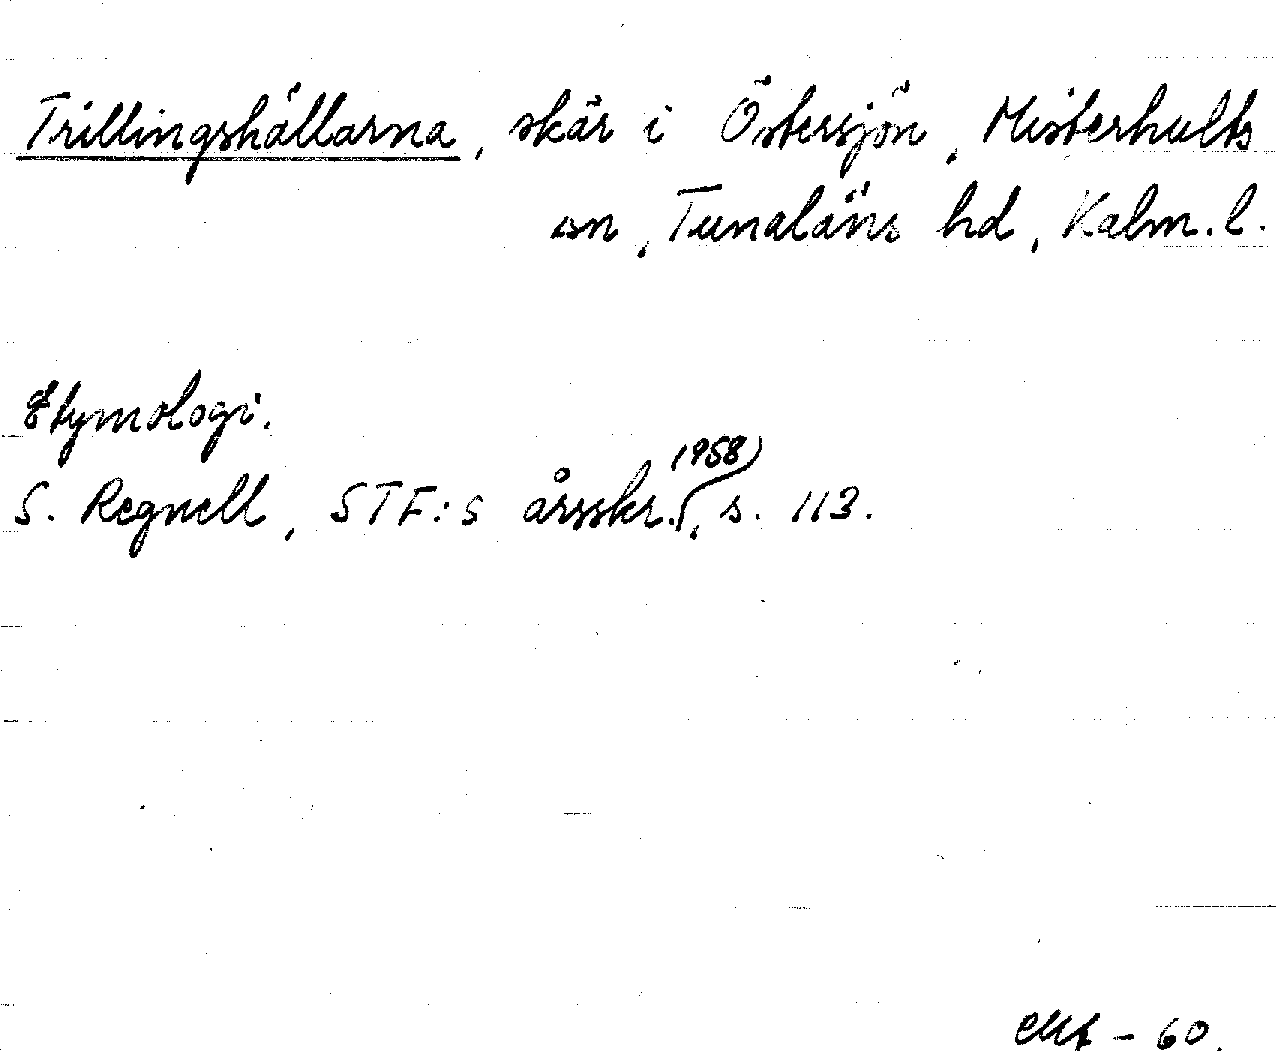 Trillingshällarna, skär i Östersjön, Misterhults
sn, Tunaläns hd, Kalm. l.
Etymologi.
S. Regnell, STF:s årsskr. (1958), s. 113.
- 60.